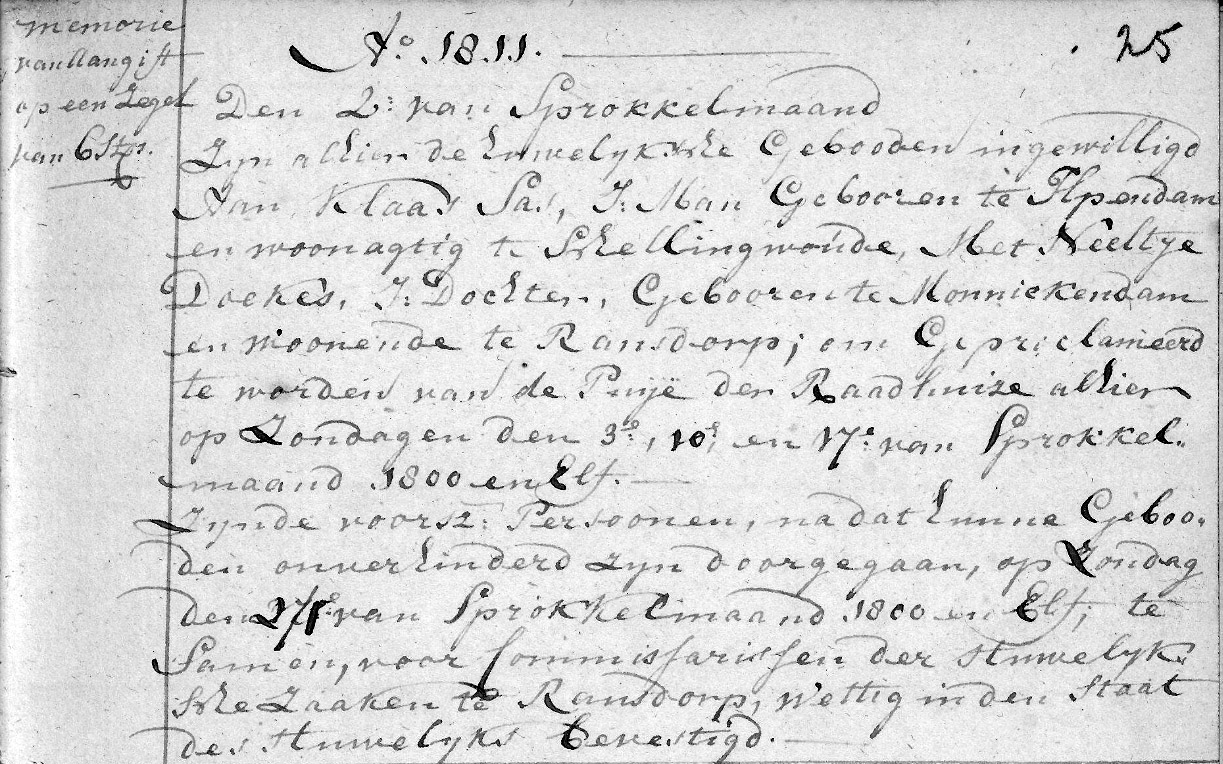 memorie
van aangift
op een Zegel
van 6 Stvrs.
Ao. 1811.
25
Den 2e van Sprokkelmaand
Zyn alhier de huwelyksche Gebooden ingewilligd
Aan Klaas Sas, J: Man Gebooren te Ilpendam
en woonagtig te Schellingwoude, Met Neeltje
Doekes, J: Dochter, Gebooren te Monnickendam
en woonende te Ransdorp; om Geproclameerd
te worden van de Puije der Raadhuize alhier
op Zondagen den 3e, 10e, en 17e van Sprokkel-
maand 1800 en Elf.
Zynde voorsz: Persoonen, na dat hunne Geboo-
den onverhinderd zyn doorgegaan, op Zondag
den 17e van Sprokkelmaand 1800 en Elf; te
Samen, voor Commissarissen der Huwelyk-
sche Zaaken te Ransdorp, wettig in den Staat
des Huwelyks bevestigd.